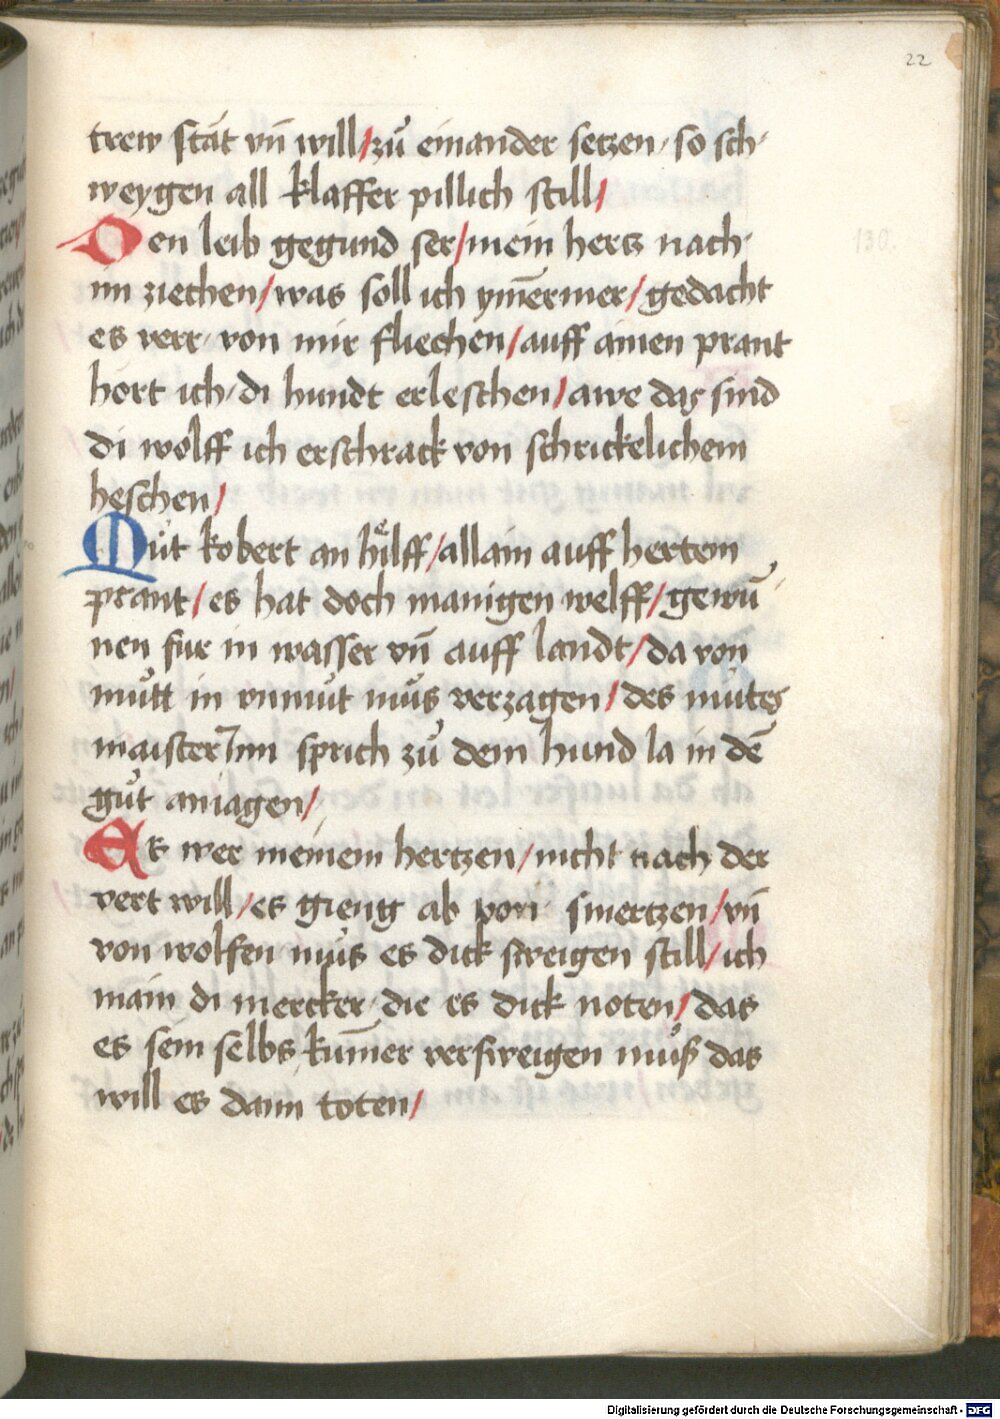 22
trew stät vn̄ will / zů einander setzen · so sch·
weygen all klaffer pillich still /
130.
Den leib gegund ser / mein hertz nach·
im ziechen / was soll ich ym̄ermer / gedacht
es verr · von mir fliechen / auff ainen prant
hort ich · di hundt erleschen / awe das sind
di wolff ich erschrack von schrickelichem
heschen /
Můt kobert an hilff / allain auff hertem
prant / es hat doch manigen welff / gewū
nen fur in wasser vn̄ auff landt / da von
můtt in vnmůt můs verzagen / des mutes
maister Nim sprich zů dem hund la in dē
gůt aniagen /
Er wer meinem hertzen / nicht nach der
vert will / es gieng ab von smertzen / vn̄
von wolfen můs es dick sweigen still / ich
main di mercker · die es dick noten / das
es sein selbs kum̄er versweigen můß das
will es dann toten /
Digitalisierung gefördert durch die Deutsche Forschungsgemeinschaft - DFG